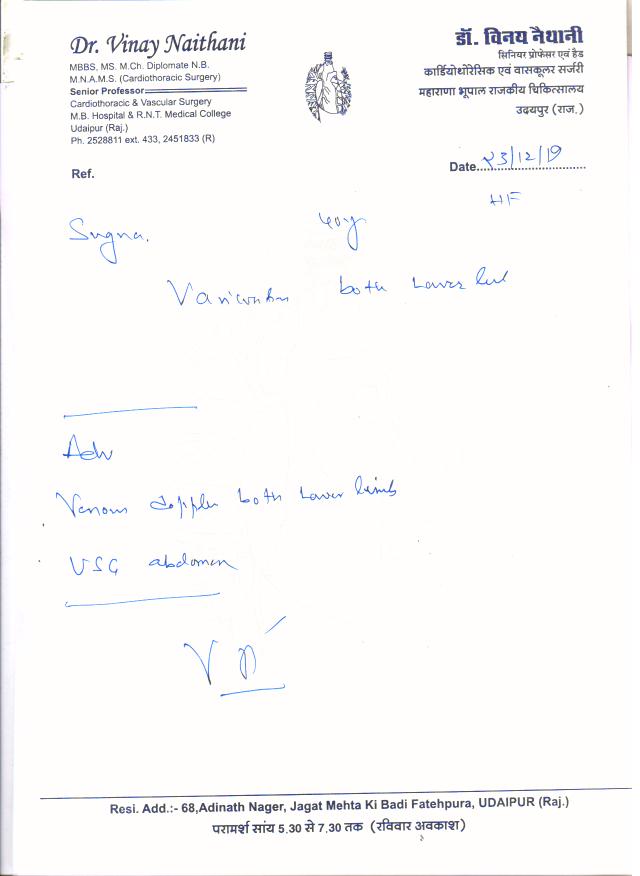 Dr. Vinay Naithani
MBBS, MS. M.Ch. Diplomate N.B.
M.N.A.M.S. (Cardiothoracic Surgery)
Senior Professor
Cardiothoracic & Vascular Surgery
M.B. Hospital & R.N.T. Medical College
Udaipur (Raj.)
Ph. 2528811 ext. 433, 2451833 (R)
डॉ. विनय नैथानी
सिनियर प्रोफेसर एवं हैड
कार्डियोथोरेसिक एवं वासकूलर सर्जरी
महाराणा भूपाल राजकीय चिकित्सालय
उदयपुर (राज.)
Ref.
Date 23/12/19
HF
Sugna.
both Lower
Adv
Venous doppler both Lower limbs
USG abdomen
Resi. Add.:- 68,Adinath Nager, Jagat Mehta Ki Badi Fatehpura, UDAIPUR (Raj.)
परामर्श सांय 5.30 से 7.30 तक (रविवार अवकाश)